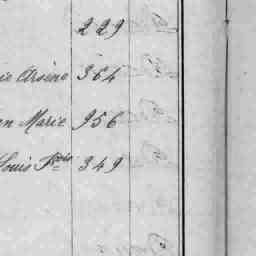 229
ie Arsène 364
en Marie 956
Louis Fcois 349